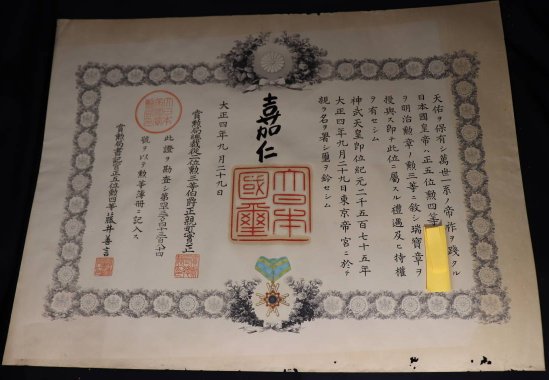 天佑ヲ保有シ萬世一系ノ帝祚ヲ踐タル
日本國皇帝ハ正五位勲四等
ヲ明治勲章ノ勲三等ニ敘シ瑞寶章ヲ
授與ス即チ此位ニ屬スル禮遇及ヒ特權
ヲ有セシム
神武天皇即位紀元二千五百七十五年
大正四年九月二十九日東京帝宮ニ於テ
親ラ名ヲ署シ璽ヲ鈐セシム
嘉仁
大日本國璽
大正四年九月二十九日
賞勲局總裁從二位勲三等伯爵正親町實正
此證ヲ勘査シ第四
號ヲ以テ勲等簿册ニ記入ス
賞勲局書記官正五位勲四等藤井善言